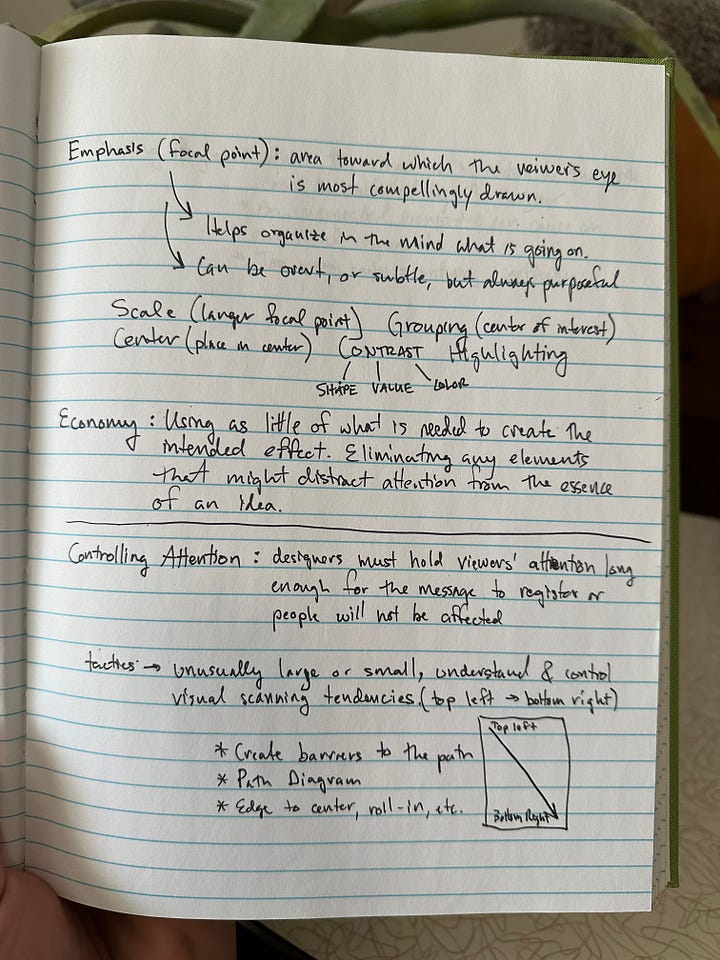 Emphasis (focal point): area toward which the veiwer's eye
is most compellingly drawn.
Helps organize in the mind what is going on.
Can be overt, or subtle, but always purposeful
Scale (larger focal point) Grouping (center of interest)
Center (place in center) CONTRAST Highlighting
SHAPE VALUE COLOR
Economy: Using as little of what is needed to create the
intended effect. Eliminating any elements
that might distract attention from the essence
of an idea.
Controlling Attention: designers must hold viewers' attention long
enough for the message to register or
people will not be affected
tactics → unusually large or small, understand & control
visual scanning tendencies. (top left → bottom right)
Top left
* Create barriers to the path
* Path Diagram
* Edge to center, roll-in, etc.
Bottom Right